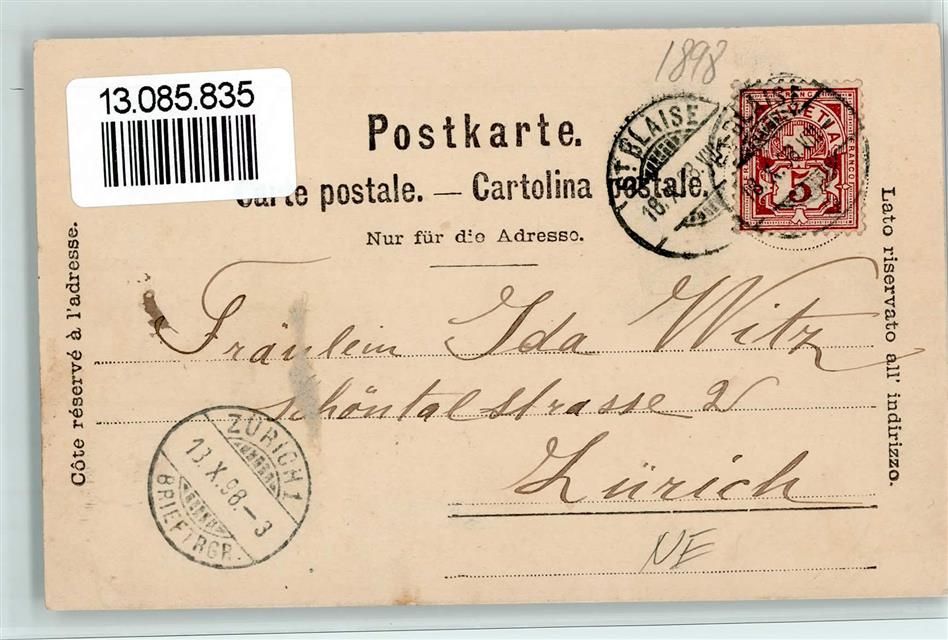 1898
13.085.835
Postkarte.
Carte postale. — Cartolina postale.
Nur für die Adresse.
ST BLAISE
HELVETIA
FRANCO
5
Côte réservé à l'adresse.
Lato riservato all' indirizzo.
Fräulein Ida Witz
Schöntalstrasse 2
Zürich
ZÜRICH 1
13.X.98.-3
BRIEFTRGR.
NE